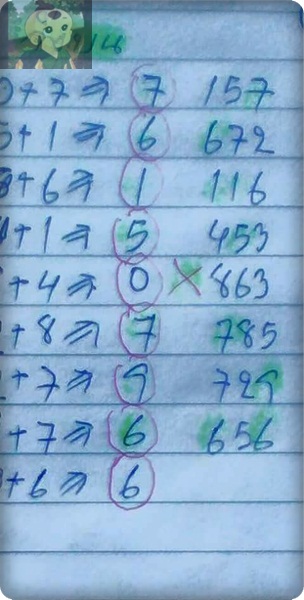 14
+ 7 ⇒ 7 157
+ 1 ⇒ 6 672
+ 6 ⇒ 1 116
+ 1 ⇒ 5 453
+ 4 ⇒ 0 × 863
+ 8 ⇒ 7 785
+ 7 ⇒ 9 729
+ 7 ⇒ 6 656
+ 6 ⇒ 6